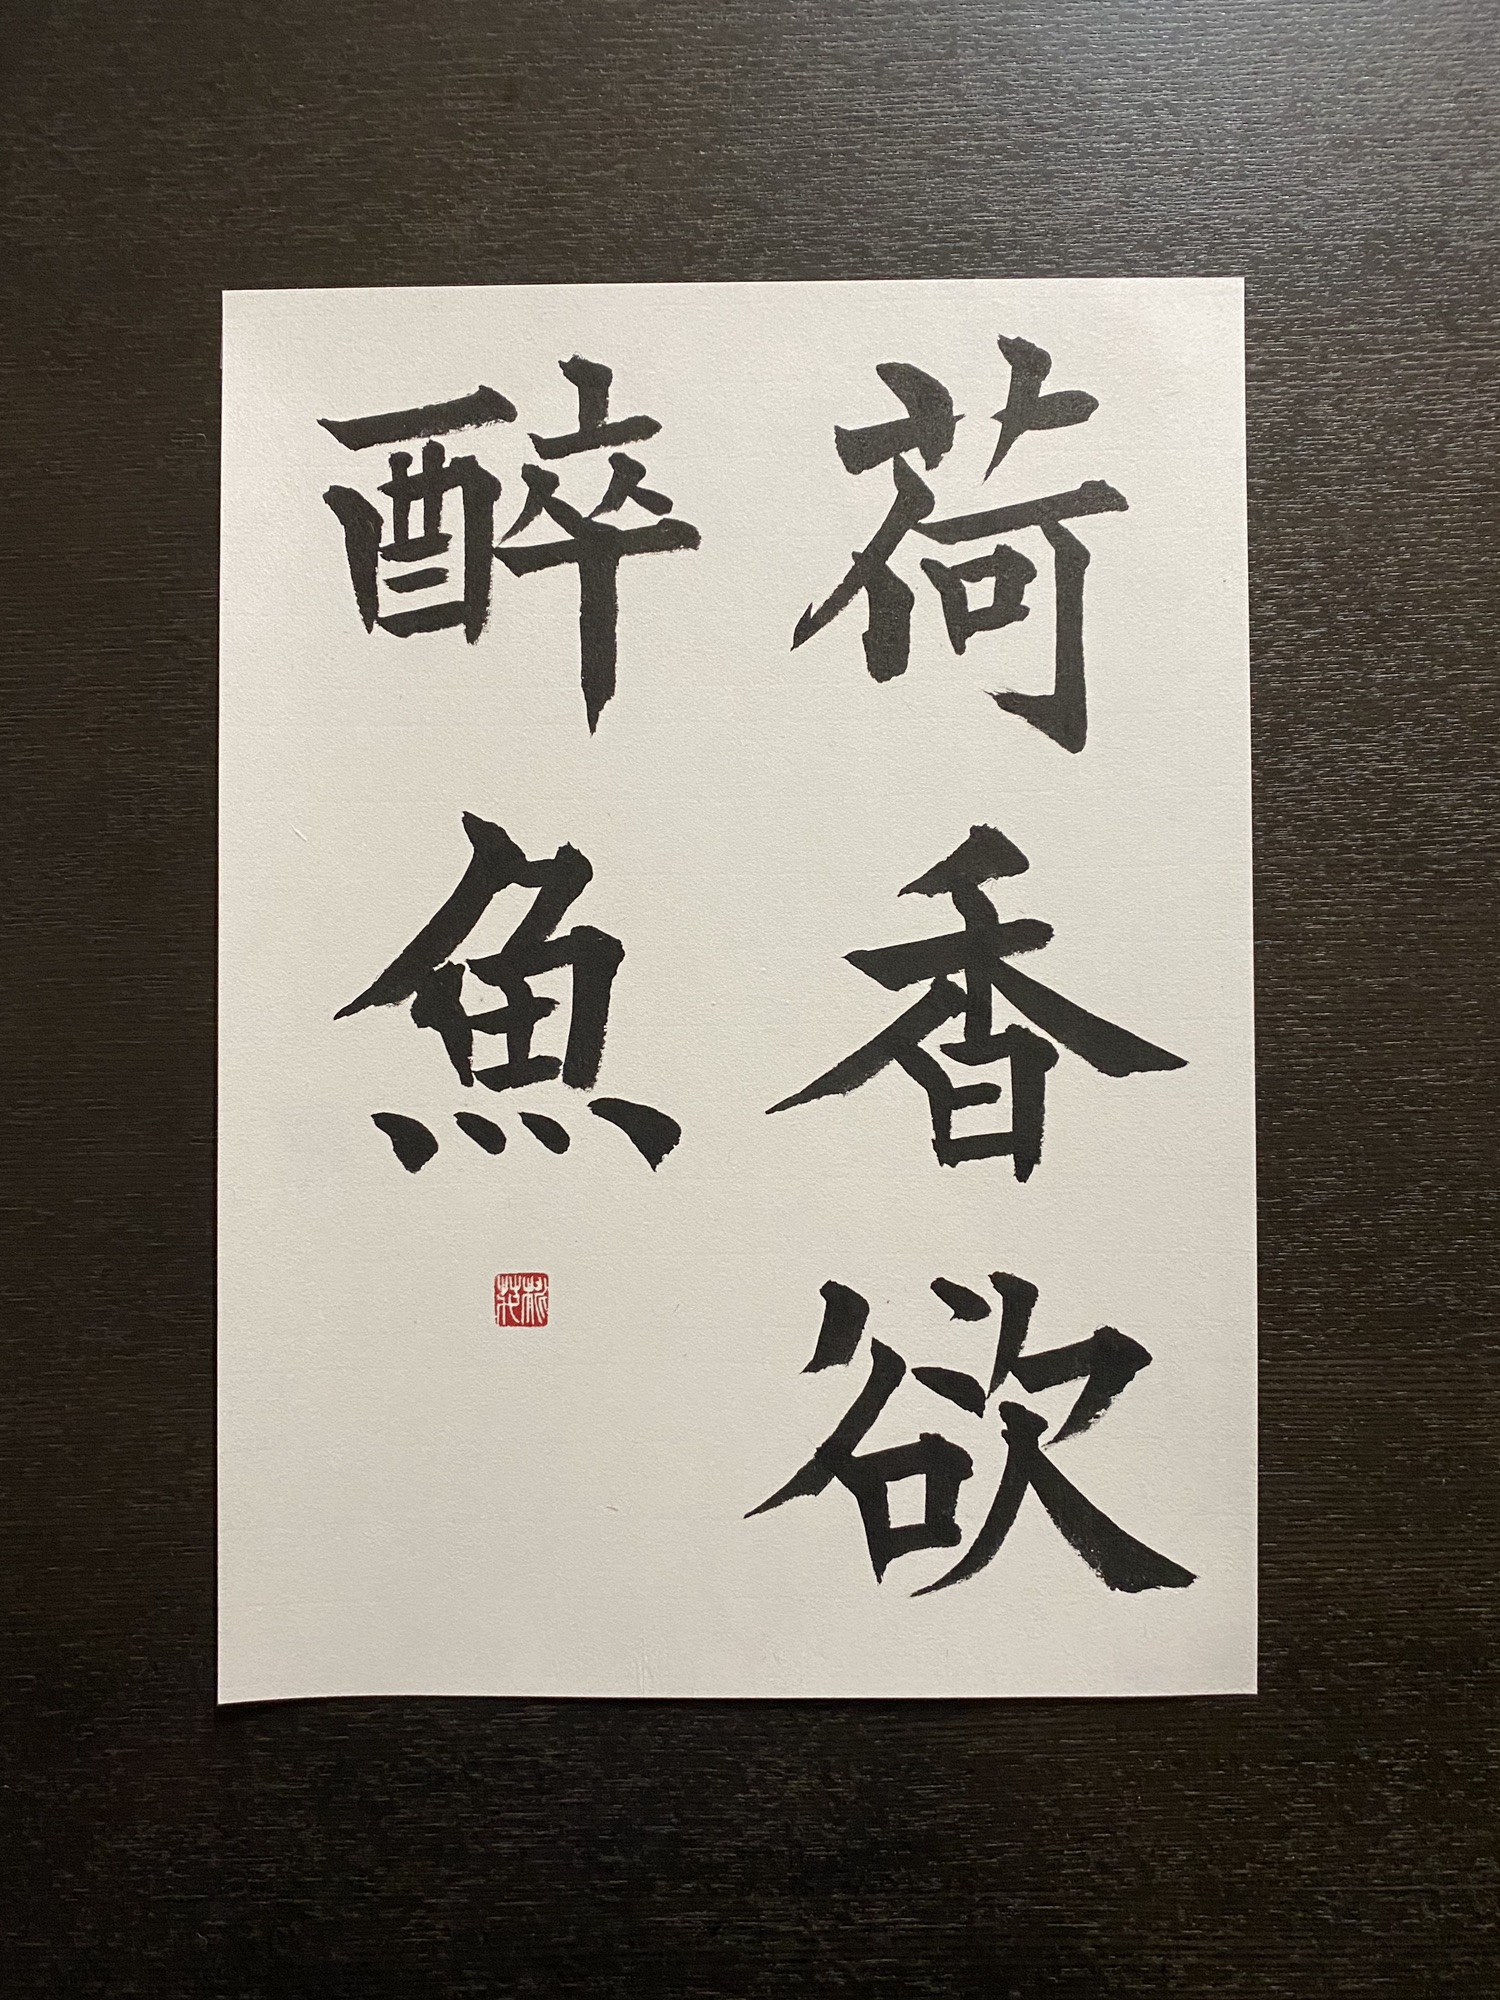 荷香欲
醉魚